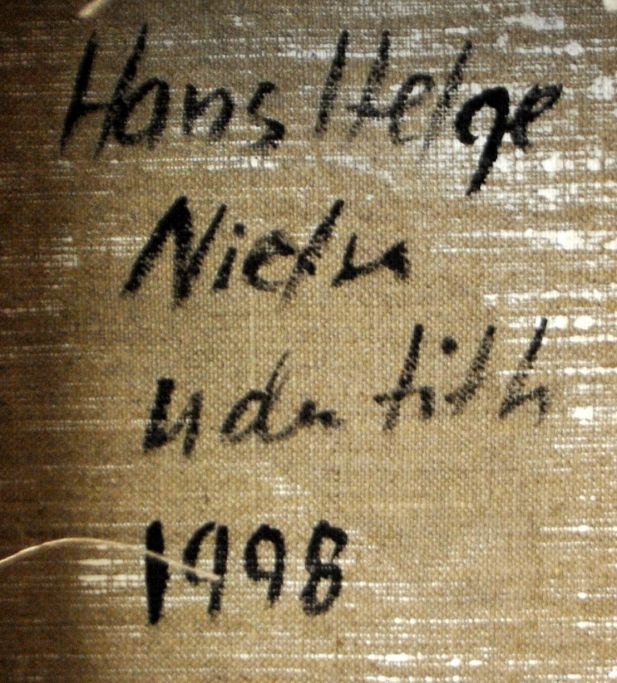 Hans Helge
Nielsen
uden titel
1998